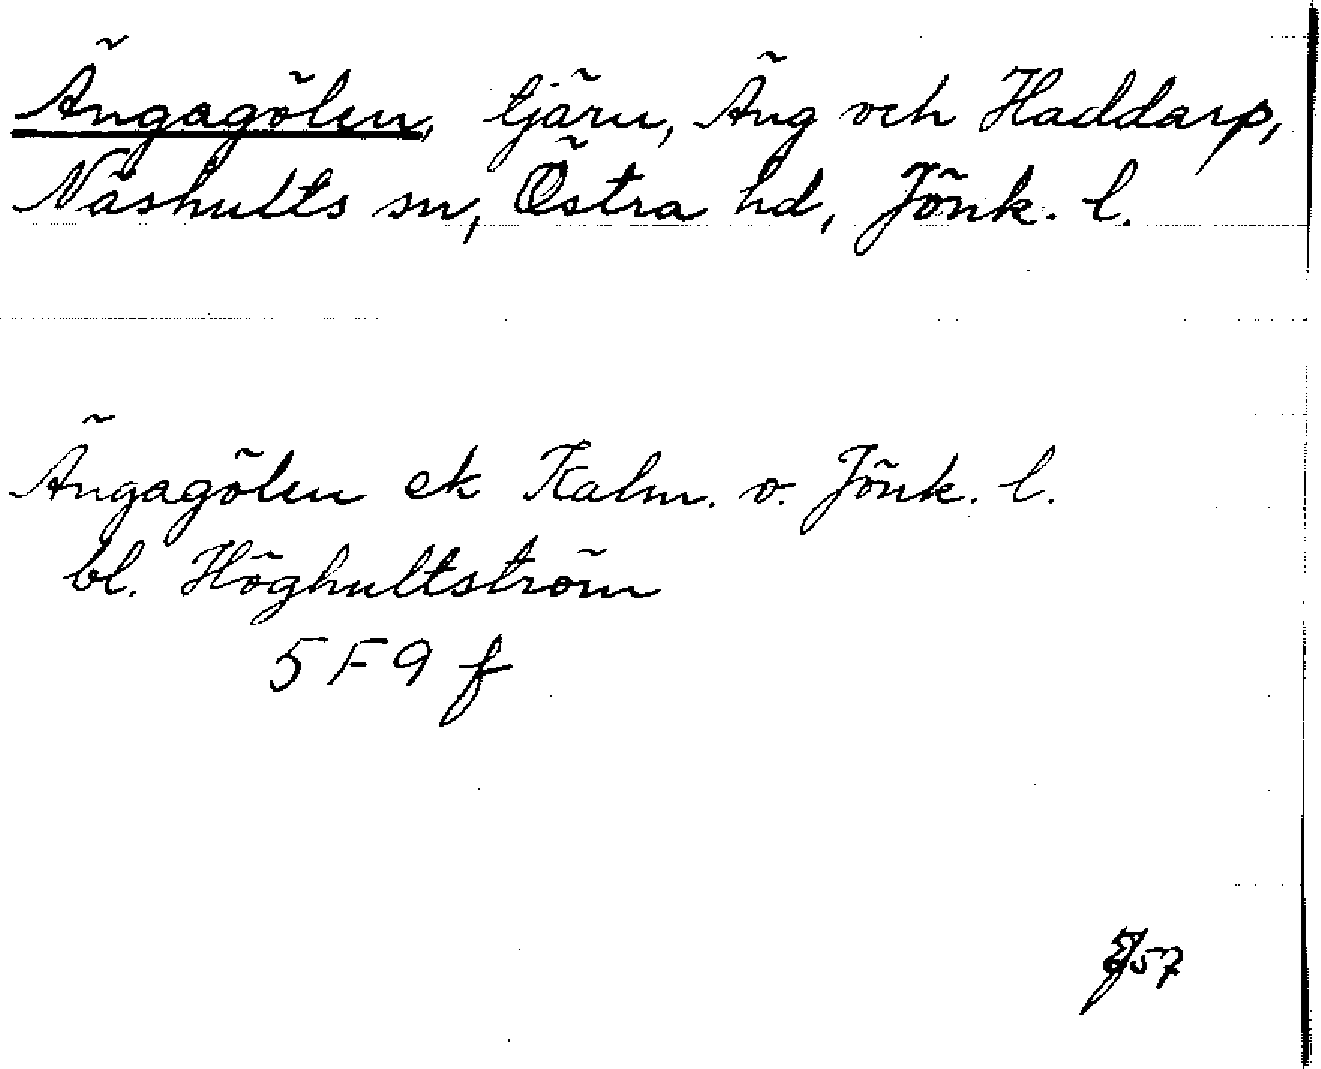 Ängagölen, tjärn, Äng och Haddarp,
Näshults sn, Östra hd, Jönk. l.
Ängagölen ek Kalm. o. Jönk. l.
bl. Höghultström
5 F 9 f